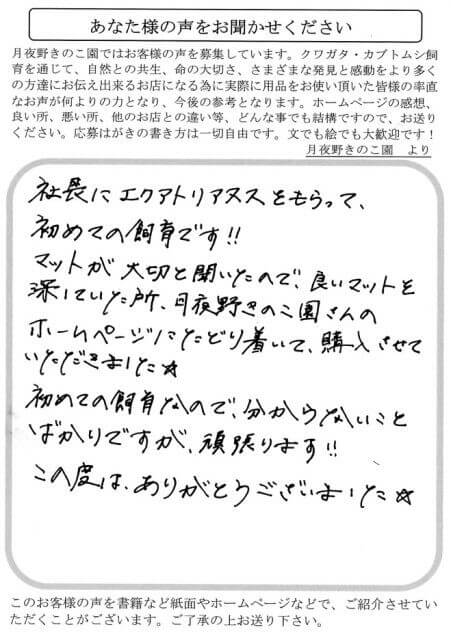 あなた様の声をお聞かせください
月夜野きのこ園ではお客様の声を募集しています。クワガタ・カブトムシ飼
育を通じて、自然との共生、命の大切さ、さまざまな発見と感動をより多く
の方達にお伝え出来るお店になる為に実際に用品をお使い頂いた皆様の率直
なお声が何よりの力となり、今後の参考となります。ホームページの感想、
良い所、悪い所、他のお店との違い等、どんな事でも結構ですので、お送り
ください。応募はがきの書き方は一切自由です。文でも絵でも大歓迎です！
月夜野きのこ園　より
社長にエクアトリアヌスをもらって、
初めての飼育です!!
マットが大切と聞いたので、良いマットを
探していた所、月夜野きのこ園さんの
ホームページにたどり着いて、購入させて
いただきました☆
初めての飼育なので、分からないこと
ばかりですが、頑張ります!!
この度は、ありがとうございました☆
このお客様の声を書籍など紙面やホームページなどで、ご紹介させてい
ただくことがございます。ご了承の上お送り下さい。